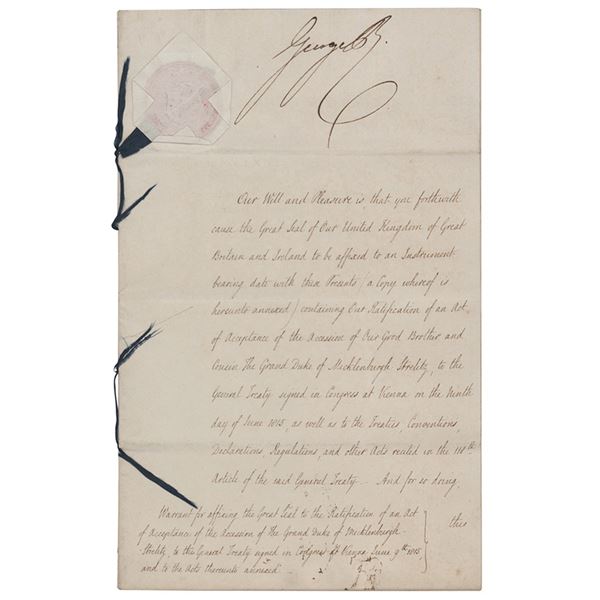 George R.
Our Will and Pleasure is, that you forthwith
cause the Great Seal of Our United Kingdom of Great
Britain and Ireland to be affixed to an Instrument
bearing date with these Presents (a Copy whereof is
hereunto annexed) containing Our Ratification of an Act
of Acceptance of the Accession of Our Good Brother and
Cousin The Grand Duke of Mecklenburgh Strelitz, to the
General Treaty signed in Congress at Vienna on the Ninth
day of June 1815, as well as to the Treaties, Conventions,
Declarations, Regulations, and other Acts recited in the 118th
Article of the said General Treaty — And for so doing,
this
Warrant for affixing the Great Seal to the Ratification of an Act
of Acceptance of the Accession of The Grand Duke of Mecklenburgh
Strelitz, to the General Treaty signed in Congress at Vienna June 9th 1815,
and to the Acts thereunto annexed —